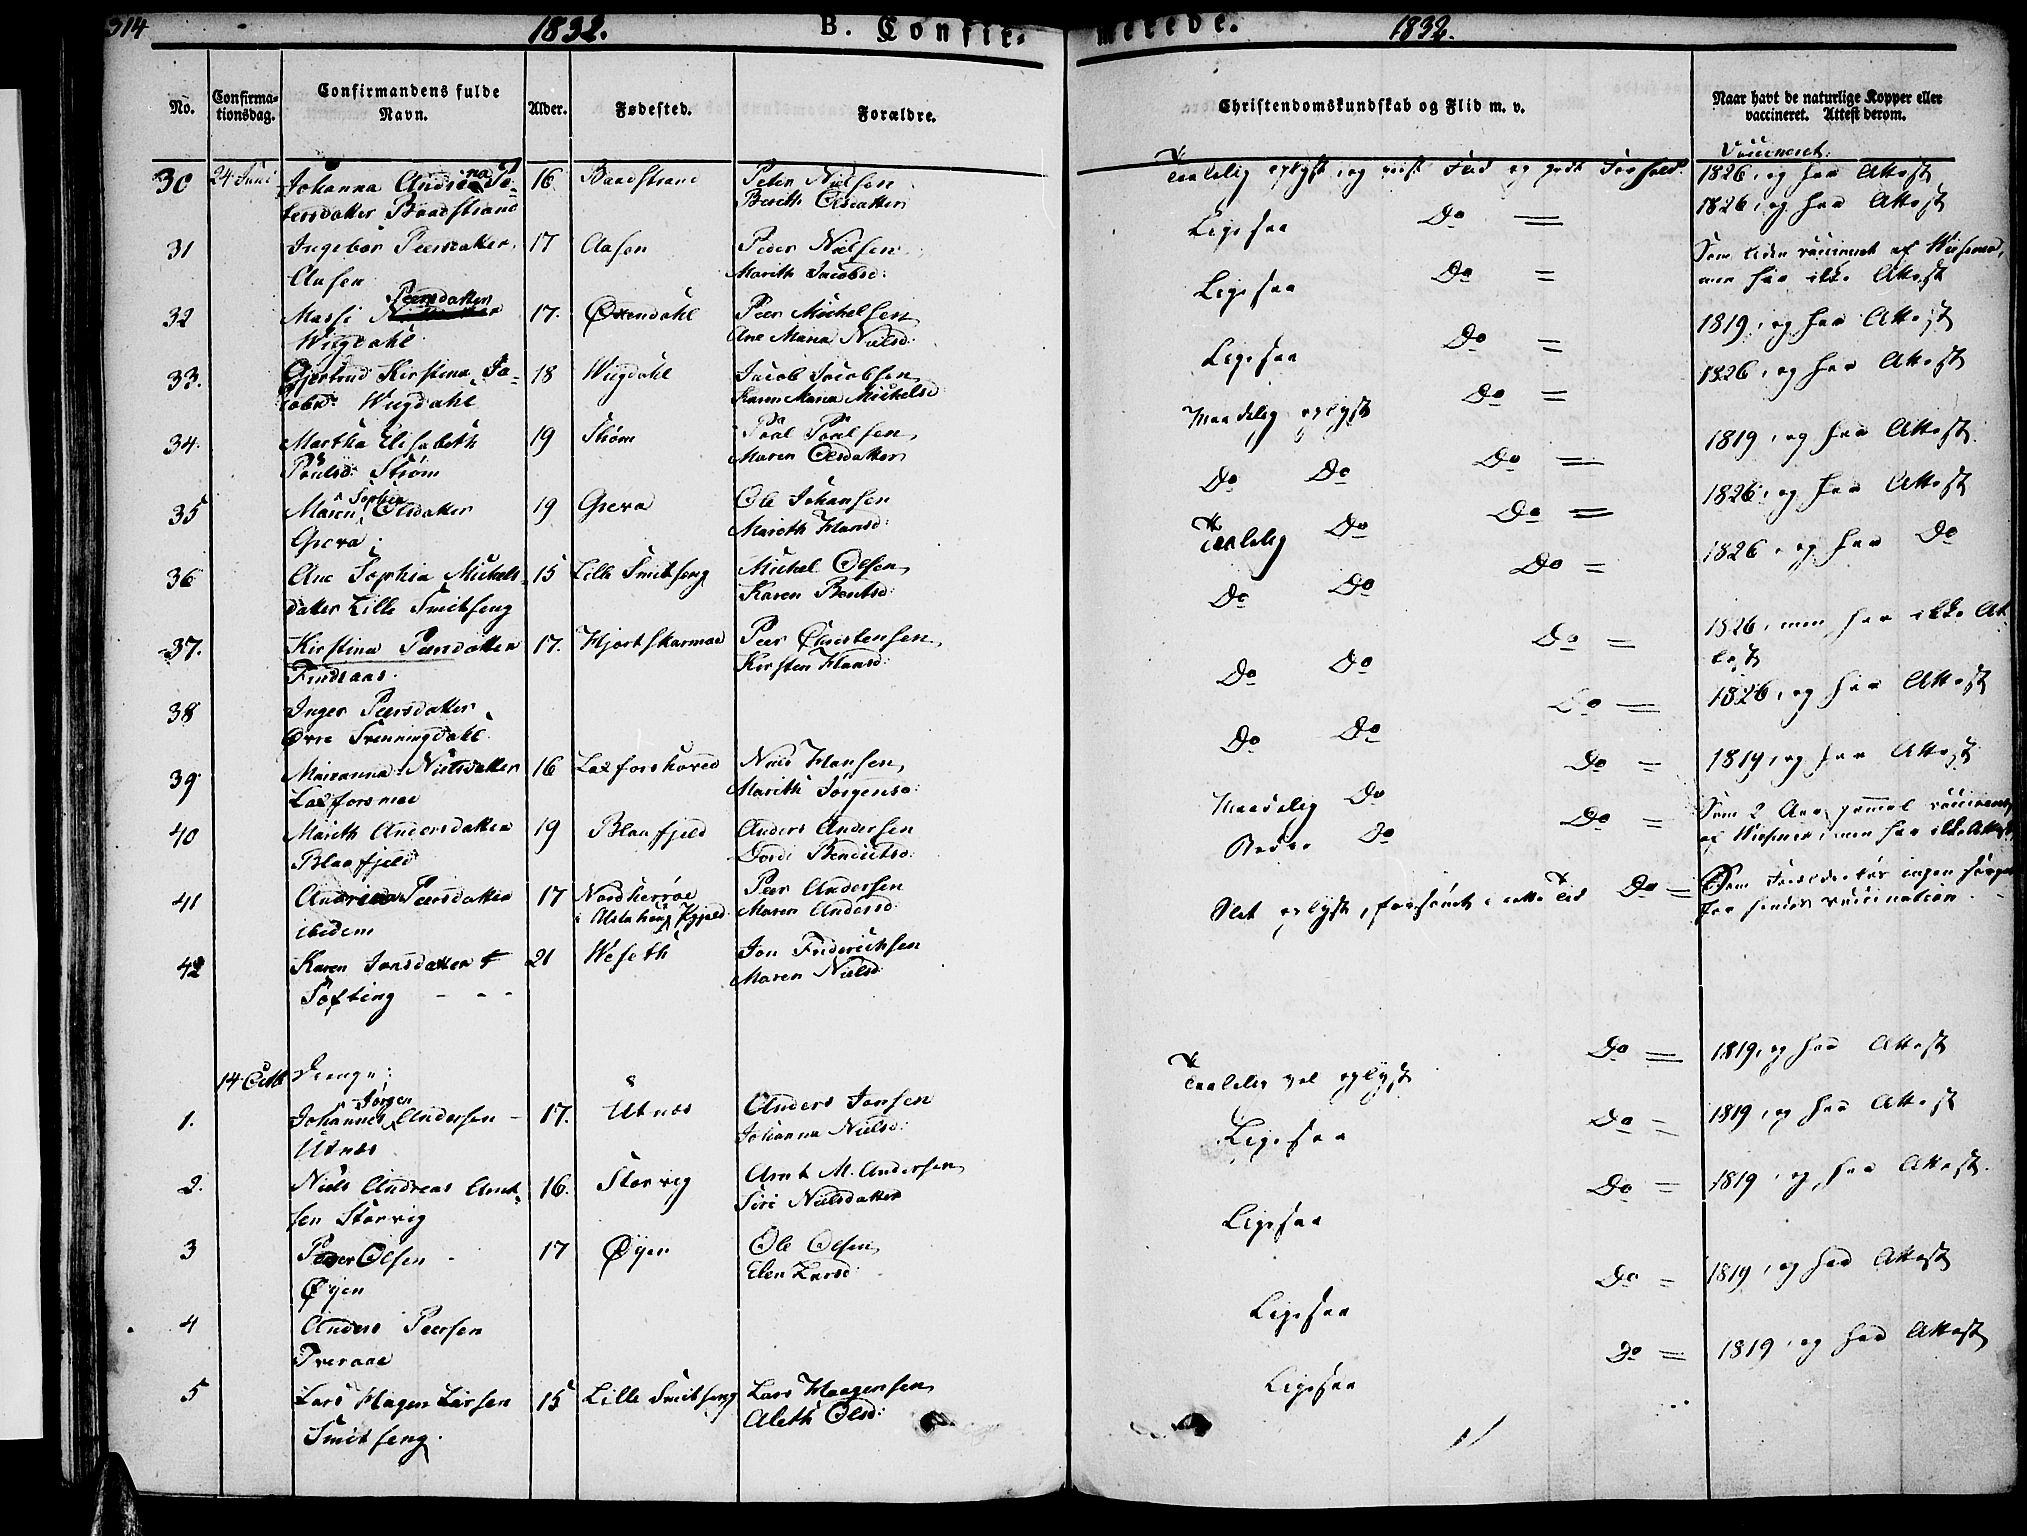 314
1832.
B. Confir-
merede.
1832.
No.
Confirma-
tionsdag.
Confirmandens fulde
Navn.
Alder.
Fødested.
Forældre.
Christendomskundskab og Flid m. v.
Naar havt de naturlige Kopper eller
vaccineret. Attest derom.
Vaccineret:
30 24 Juni Johanna Andrea Pe-
tersdatter Baadstrand
16 Baadstrand Peter Nielsen
Berith Olsdatter
Taalelig oplyst, og viist Flid og godt Forhold.
1826, og har Attest
31 Ingebor Peersdatter
Aasen
17 Aasen Peder Nielsen
Marith Jacobsd:
Ligesaa Do =
1826, og har Attest
32 Massi Peersdatter
Wiigdahl
17. Øxendahl Peer Michelsen
Ane Maria Nielsd:
Ligesaa Do =
Som Liden vaccineret af
men har ikke Attest
33. Gjertrud Kirstina Ja-
cobsd: Wiigdahl
18 Wiigdahl Jacob Jacobsen
Karen Maria Mickelsd
Ligesaa Do =
1819, og har Attest
34. Martha Elisabeth
Paulsd: Strøm
19 Strøm Paal Paalsen
Maren Olsdatter
Maadelig oplyst Do =
1826, og har Attest
35 Maren Sophia Olsdatter
Greva
19 Greva Ole Johansen
Marith Hansd:
Do Do Do =
1819, og har Attest
36 Ane Sophia Mickels-
datter Lille Smitseng
15 Lille Smitseng Mickel Olsen
Karen Bentsd:
Taalelig Do Do =
1826, og har Attest
37. Kirstina Peersdatter
Findsaas
17. Hjortskarmoe Peer Christensen
Kirsten Hansd:
Do Do Do =
1826, og har Do
38 Inger Peersdatter
Øvre Svenningdahl
Do Do Do =
1826, men har ikke At-
test
39 Marianna Nielsdatter
Laxforsmoe
16 Laxforshoved Niels Hansen
Marith Jørgensd:
Do Do Do =
1826, og har Attest
40 Marith Andersdatter
Blaafjeld
19 Blaafjeld Anders Andersen
Dordi Bendictsd:
Maadelig Do Do =
1819, og har Attest
41 Peersdatter
ibidem
17 Nordherrøe
i Alstahoug Gjeld
Peer Andersen
Maren Andersd:
Do Do =
Som 2 Aar gammel vaccineret
af men har ikke Attest
42 Karen Jonsdatter
Tofting - - -
21 Weseth Jon Friderichsen
Maren Nielsd
Slet oplyst, forsømt i Do =
Som Forældre har ingen
for hendes vaccination.
14 Octb Drenge:
1. Johannes Jørgen Andersen -
Utnæs
17. Utnæs Anders Jonsen
Johanna Nielsd:
Taalelig vel oplyst Do =
1819, og har Attest
2. Niels Andreas Arnt-
sen Storvig
16. Storvig Arnt M. Andersen
Siri Nielsdatter
Ligesaa Do =
1819, og har Attest
3 Peder Olsen -
Øyen
17 Øyen Ole Olsen
Elen Larsd:
Ligesaa Do =
1819, og har Attest.
4 Anders Peersen
Tveraae
Ligesaa Do =
1819, og har Attest
5 Lars Hagen Larsen
Smitseng.
15 Lille Smitseng Lars Haagensen
Aleth Olsd:
Ligesaa Do =
1819, og har Attest